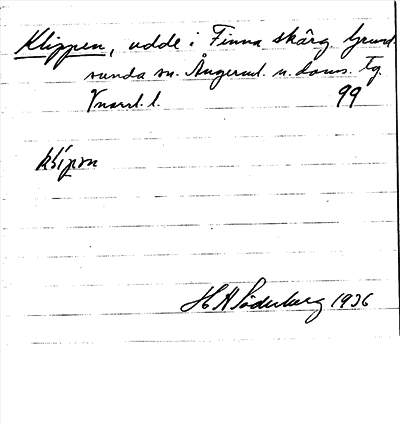 Klippen, udde i Finna skärg. Grund-
sunda sn. Ångerml. n. doms. tg.
Vnorrl. l. 99
klípen
H A Söderberg 1936